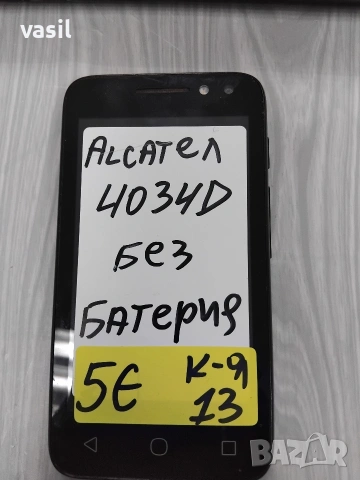 vasil
ALCATEЛ
4034D
БЕЗ
БАТЕРИЯ
5€ К-Я
13
BAZAR